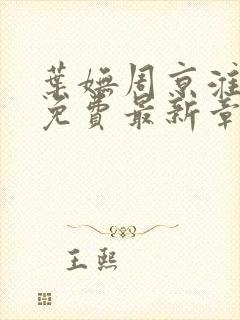 葉嫵周京淮
免費最新章
王熙